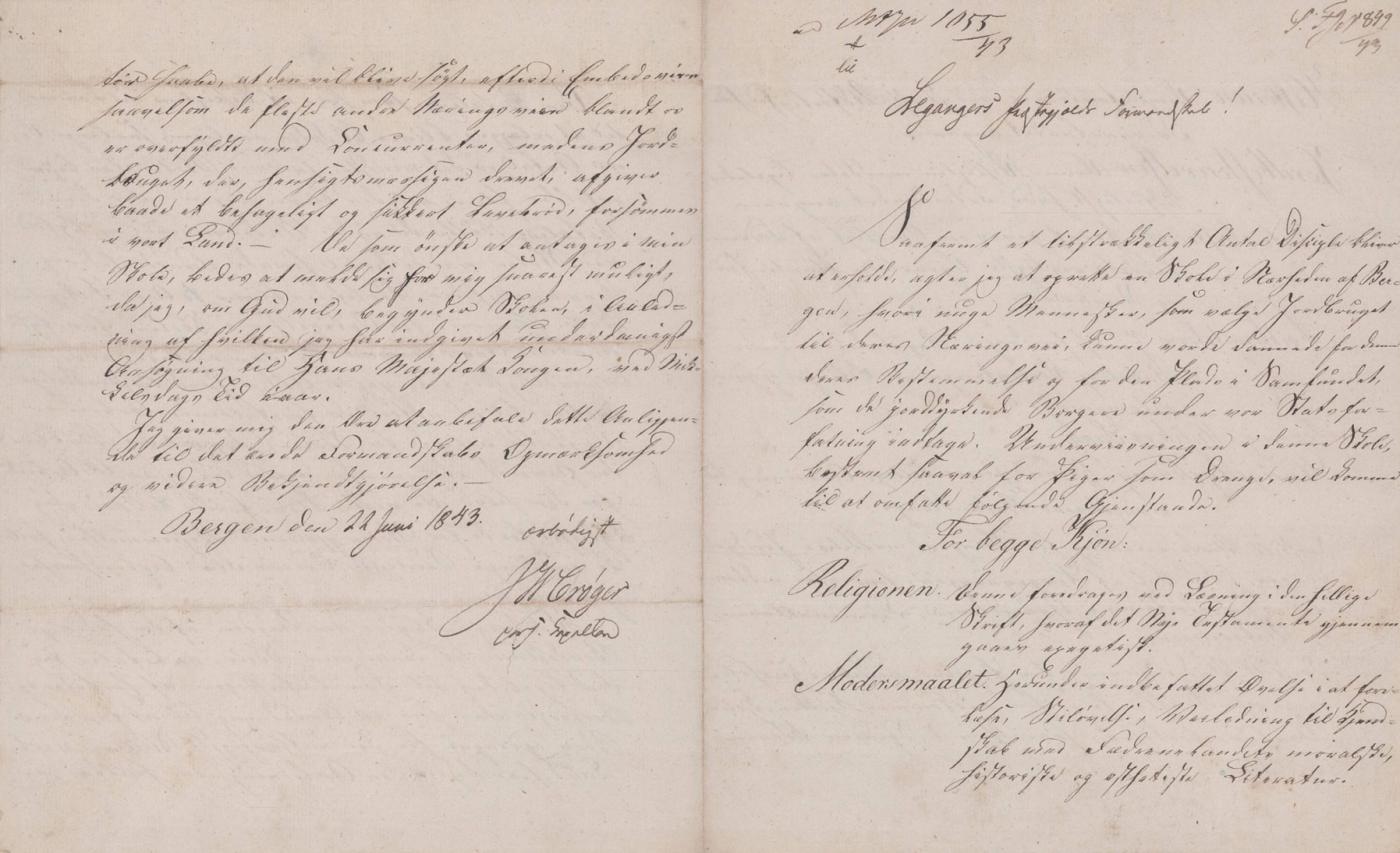 tør haabe, at den vil blive søgt, efterdi Embedsveien
saavelsom de fleste andre Næringsveie blandt os
er overfyldt med Concurrenter, medens Jord-
bruget, der, hensigtsmæssigen drevet, afgiver
baade et behageligt og sikkert Levebrød, forsømmes
i vort Land. — De som ønske at antages i min
Skole, bedes at melde sig for mig snarest muligt,
da jeg, om Gud vil, begynder Skolen, i Anled-
ning af hvilken jeg har indgivet underdanigst
Ansøgning til Hans Majestæt Kongen, ved Mik-
kelsdags Tid i aar.
Jeg giver mig den Ære at anbefale dette Anliggen-
de til det ærede Formandskabs Opmærksomhed
og videre Bekjendtgjørelse. —
Bergen den 22 Juni 1843.
ærbødigst
J H Crøger
pers. Capellan
1055
/43
til
1849
/43
Legangers Præstegjælds Formandskab!
Saafremt et tilstrækkeligt Antal Disciple bliver
at erholde, agter jeg at oprette en Skole i Nærheden af Ber-
gen, hvori unge Mennesker, som vælge Jordbruget
til deres Næringsvei, kunne vorde dannede for denne
deres Bestemmelse og for den Plads i Samfundet,
som de jorddyrkende Borgere under vor Statsfor-
fatning indtage. Underviisningen i denne Skole,
bestemt saavel for Piger som Drenge, vil komme
til at omfatte følgende Gjenstande.
For begge Kjøn:
Religionen. Denne foredrages ved Læsning i den hellige
Skrift, hvoraf det Nye Testamente gjennem-
gaaes exegetisk.
Modersmaalet. Herunder indbefattet Øvelse i at fore-
læse, Stiløvelse, Veiledning til Kjend-
skab med Fædrenelandets moralske,
historiske og æsthetiske Literatur.